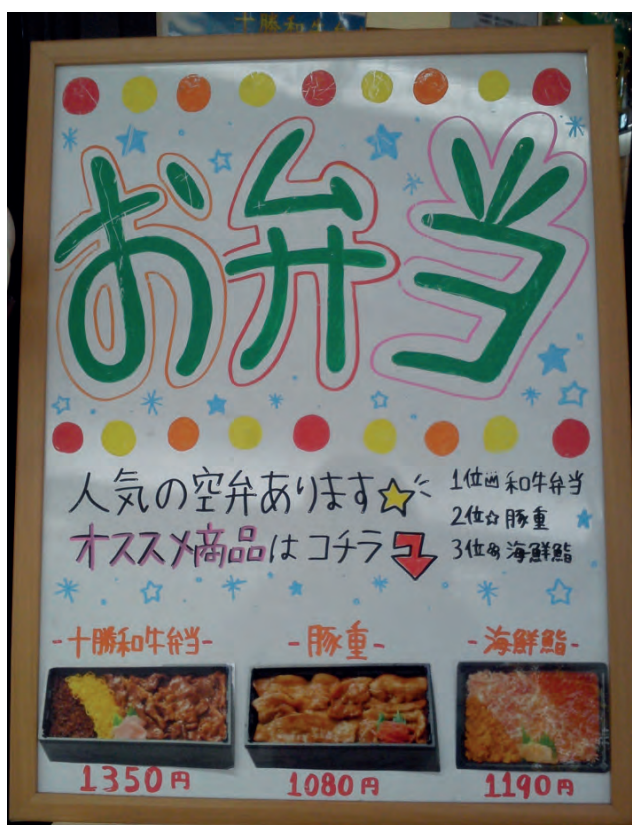 十勝和牛
お弁当
人気の空弁あります
オススメ商品はコチラ
1位 和牛弁当
2位☆豚重
3位 海鮮鮨
-十勝和牛弁当-
-豚重-
-海鮮鮨-
1350円
1080円
1190円